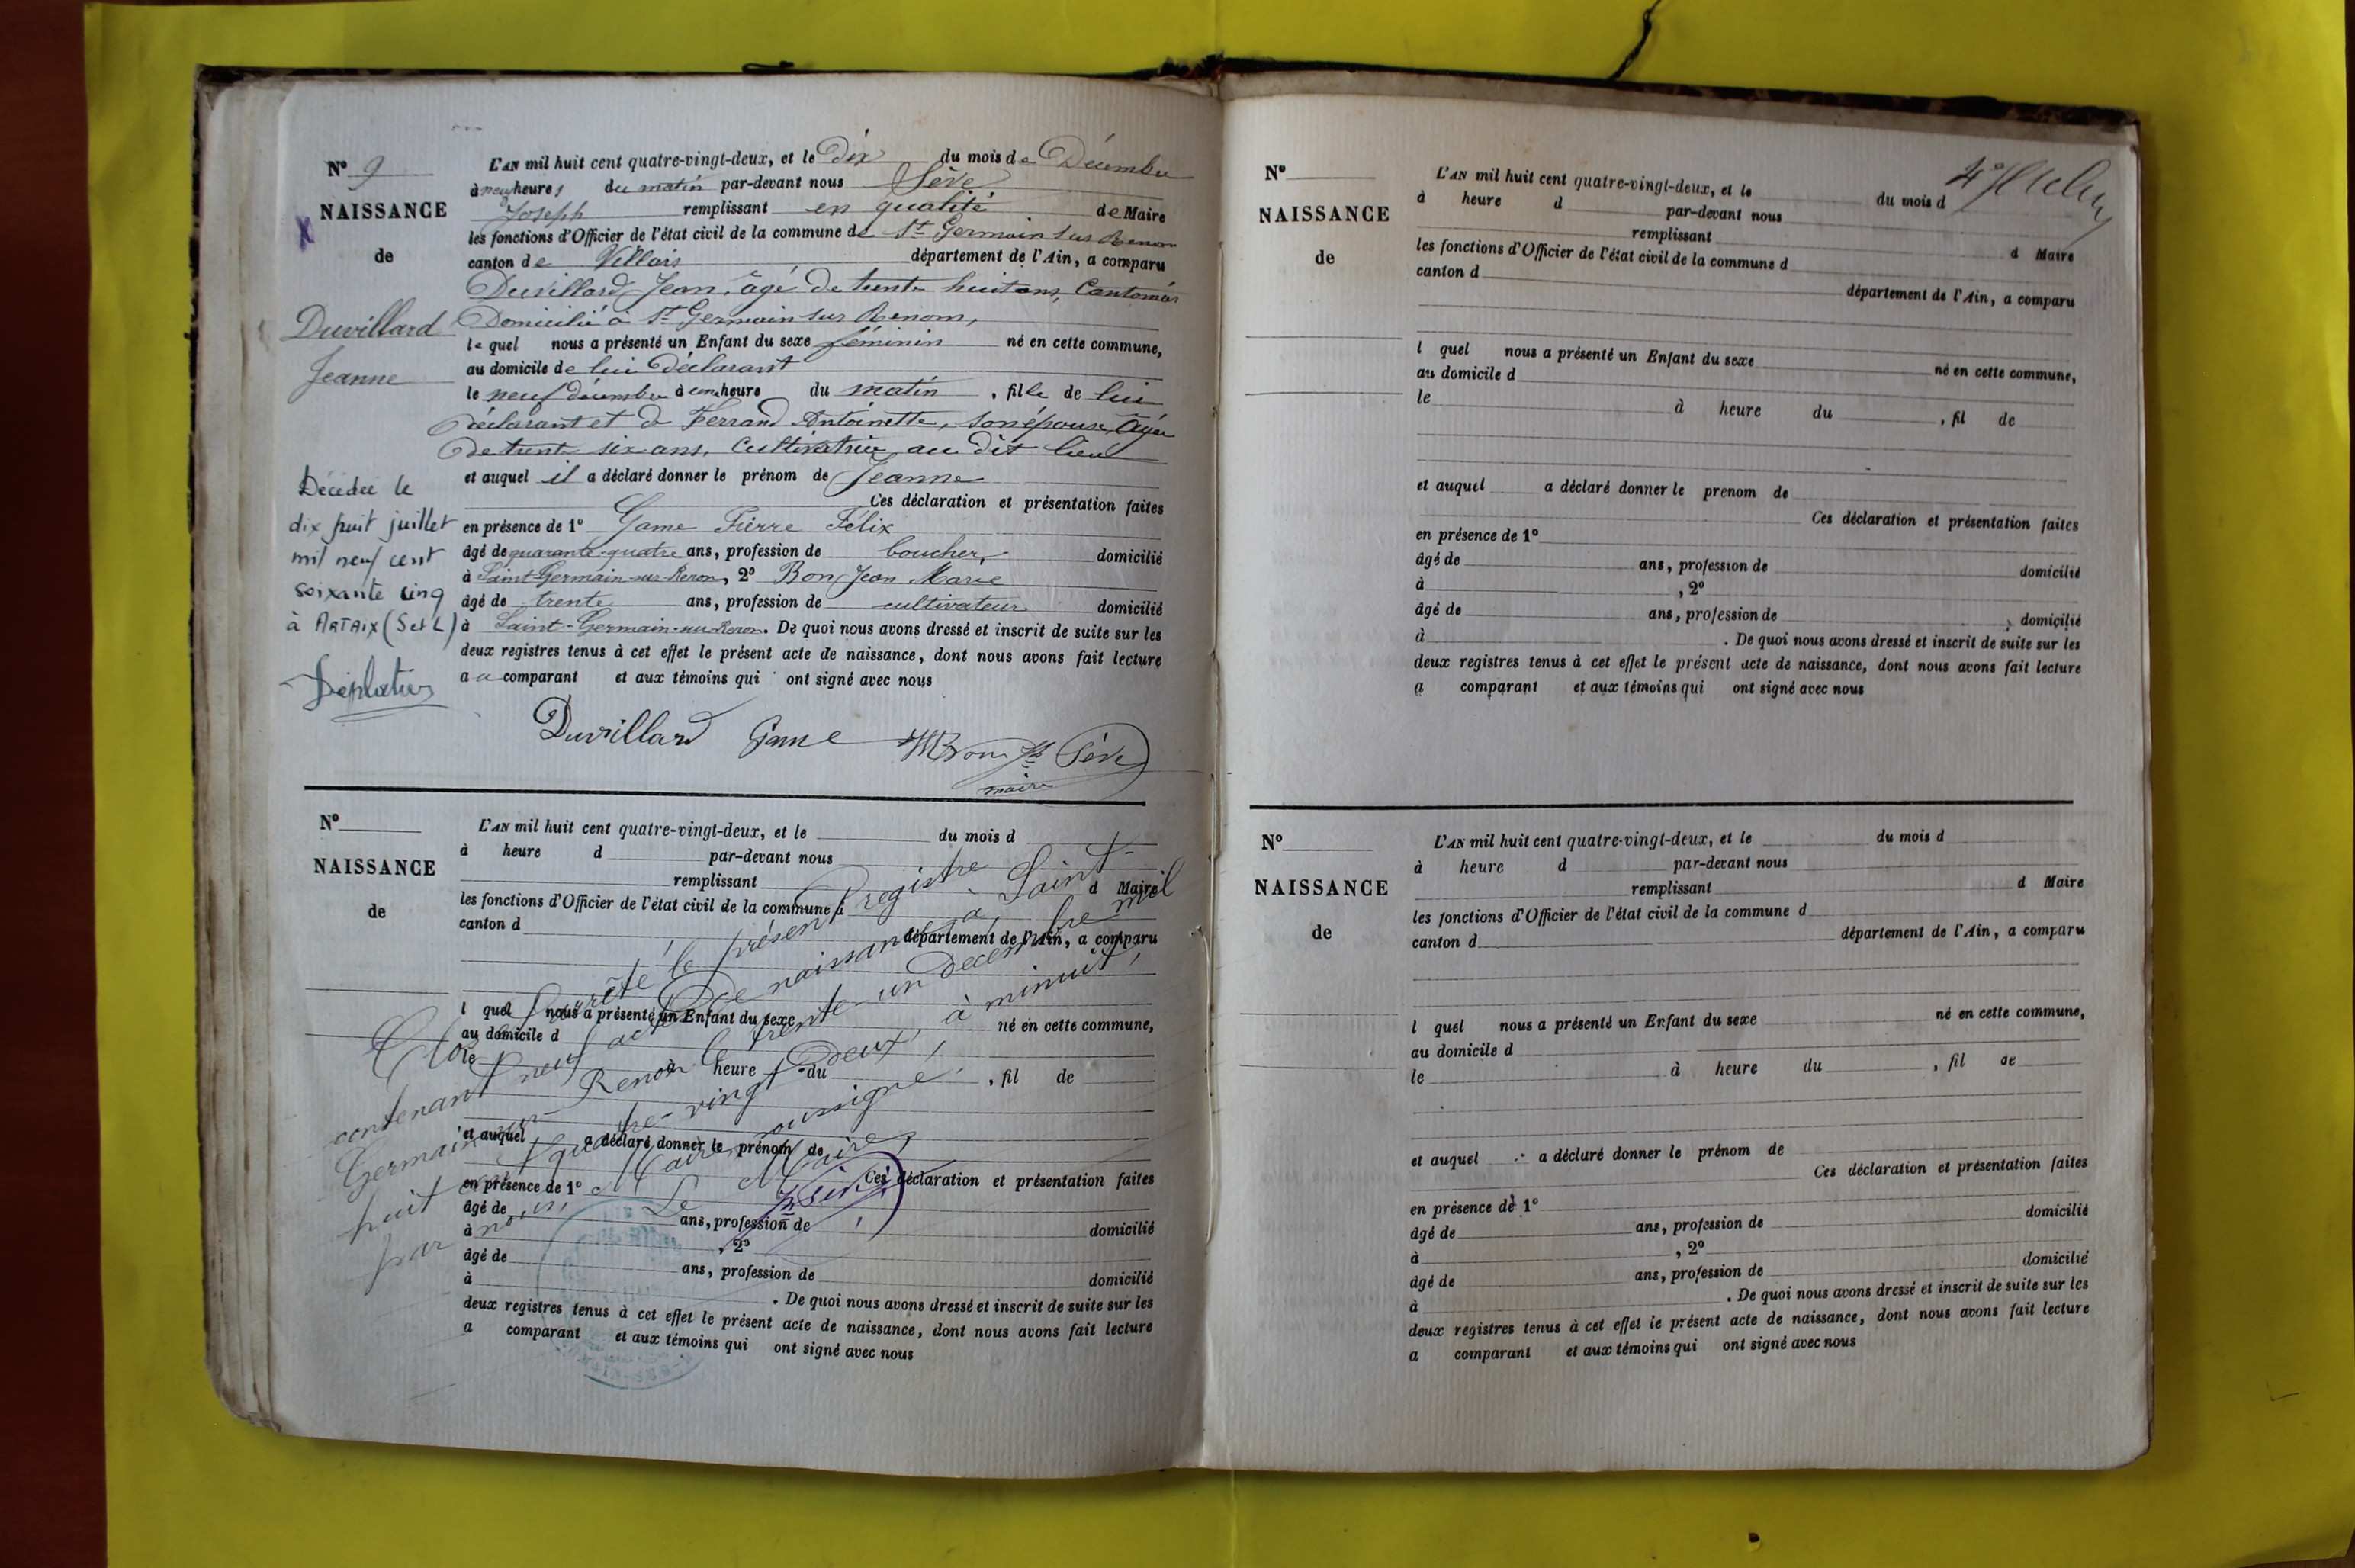 N° 9
NAISSANCE
de
Duvillard
Jeanne
L'AN mil huit cent quatre-vingt-deux, et le dix du mois de Décembre
à neuf heures du matin par-devant nous Sève
Joseph remplissant en qualité de Maire
les fonctions d'Officier de l'état civil de la commune de St Germain sur Renom
canton de Villars département de l'Ain, a comparu
Duvillard Jean, âgé de trente huit ans, Cantonnier
Domicilié à St Germain sur Renom,
lequel nous a présenté un Enfant du sexe féminin né en cette commune,
au domicile de lui déclarant
le neuf décembre à une heure du matin, fille de lui
déclarant et d Ferrand Antoinette, son épouse, âgée
de trente six ans, Cultivatrice au dit lieu
et auquel il a déclaré donner le prénom de Jeanne
Ces déclaration et présentation faites
en présence de 1° Game Pierre Félix
âgé de quarante-quatre ans, profession de boucher, domicilié
à Saint-Germain-sur-Renon, 2° Bon Jean Marie
âgé de trente ans, profession de cultivateur domicilié
à Saint-Germain-sur-Renon. De quoi nous avons dressé et inscrit de suite sur les
deux registres tenus à cet effet le présent acte de naissance, dont nous avons fait lecture
au comparant et aux témoins qui ont signé avec nous
Décédée le
dix huit juillet
mil neuf cent
soixante cinq
à ARTAIX (S et L)
Duvillard Game Bon Jh Sève
maire
N°
NAISSANCE
de
L'AN mil huit cent quatre-vingt-deux, et le du mois d
à heure d par-devant nous
remplissant d Maire
les fonctions d'Officier de l'état civil de la commune d
canton d département de l'Ain, a comparu
l quel nous a présenté un Enfant du sexe né en cette commune,
au domicile d
le heure du , fil de
et auquel a déclaré donner le prénom de
Ces déclaration et présentation faites
en présence de 1°
âgé de ans, profession de domicilié
à , 2°
âgé de ans, profession de domicilié
à . De quoi nous avons dressé et inscrit de suite sur les
deux registres tenus à cet effet le présent acte de naissance, dont nous avons fait lecture
a comparant et aux témoins qui ont signé avec nous
Clos et arrêté le présent registre
contenant neuf actes de naissance à Saint-
Germain sur Renon le trente-un Décembre mil
huit cent quatre-vingt Deux, à minuit,
par nous, Maire soussigné,
Le Maire,
Jh Sève
N°
NAISSANCE
de
L'AN mil huit cent quatre-vingt-deux, et le du mois d
à heure d par-devant nous
remplissant d Maire
les fonctions d'Officier de l'état civil de la commune d
canton d département de l'Ain, a comparu
l quel nous a présenté un Enfant du sexe né en cette commune,
au domicile d
le à heure du , fil de
et auquel a déclaré donner le prenom de
Ces déclaration et présentation faites
en présence de 1°
âgé de ans, profession de domicilié
à , 2°
âgé de ans, profession de domicilié
à . De quoi nous avons dressé et inscrit de suite sur les
deux registres tenus à cet effet le présent acte de naissance, dont nous avons fait lecture
a comparant et aux témoins qui ont signé avec nous
N°
NAISSANCE
de
L'AN mil huit cent quatre-vingt-deux, et le du mois d
à heure d par-devant nous
remplissant d Maire
les fonctions d'Officier de l'état civil de la commune d
canton d département de l'Ain, a comparu
l quel nous a présenté un Enfant du sexe né en cette commune,
au domicile d
le à heure du , fil de
et auquel a déclaré donner le prénom de
Ces déclaration et présentation faites
en présence de 1°
âgé de ans, profession de domicilié
à , 2°
âgé de ans, profession de domicilié
à . De quoi nous avons dressé et inscrit de suite sur les
deux registres tenus à cet effet le présent acte de naissance, dont nous avons fait lecture
a comparant et aux témoins qui ont signé avec nous